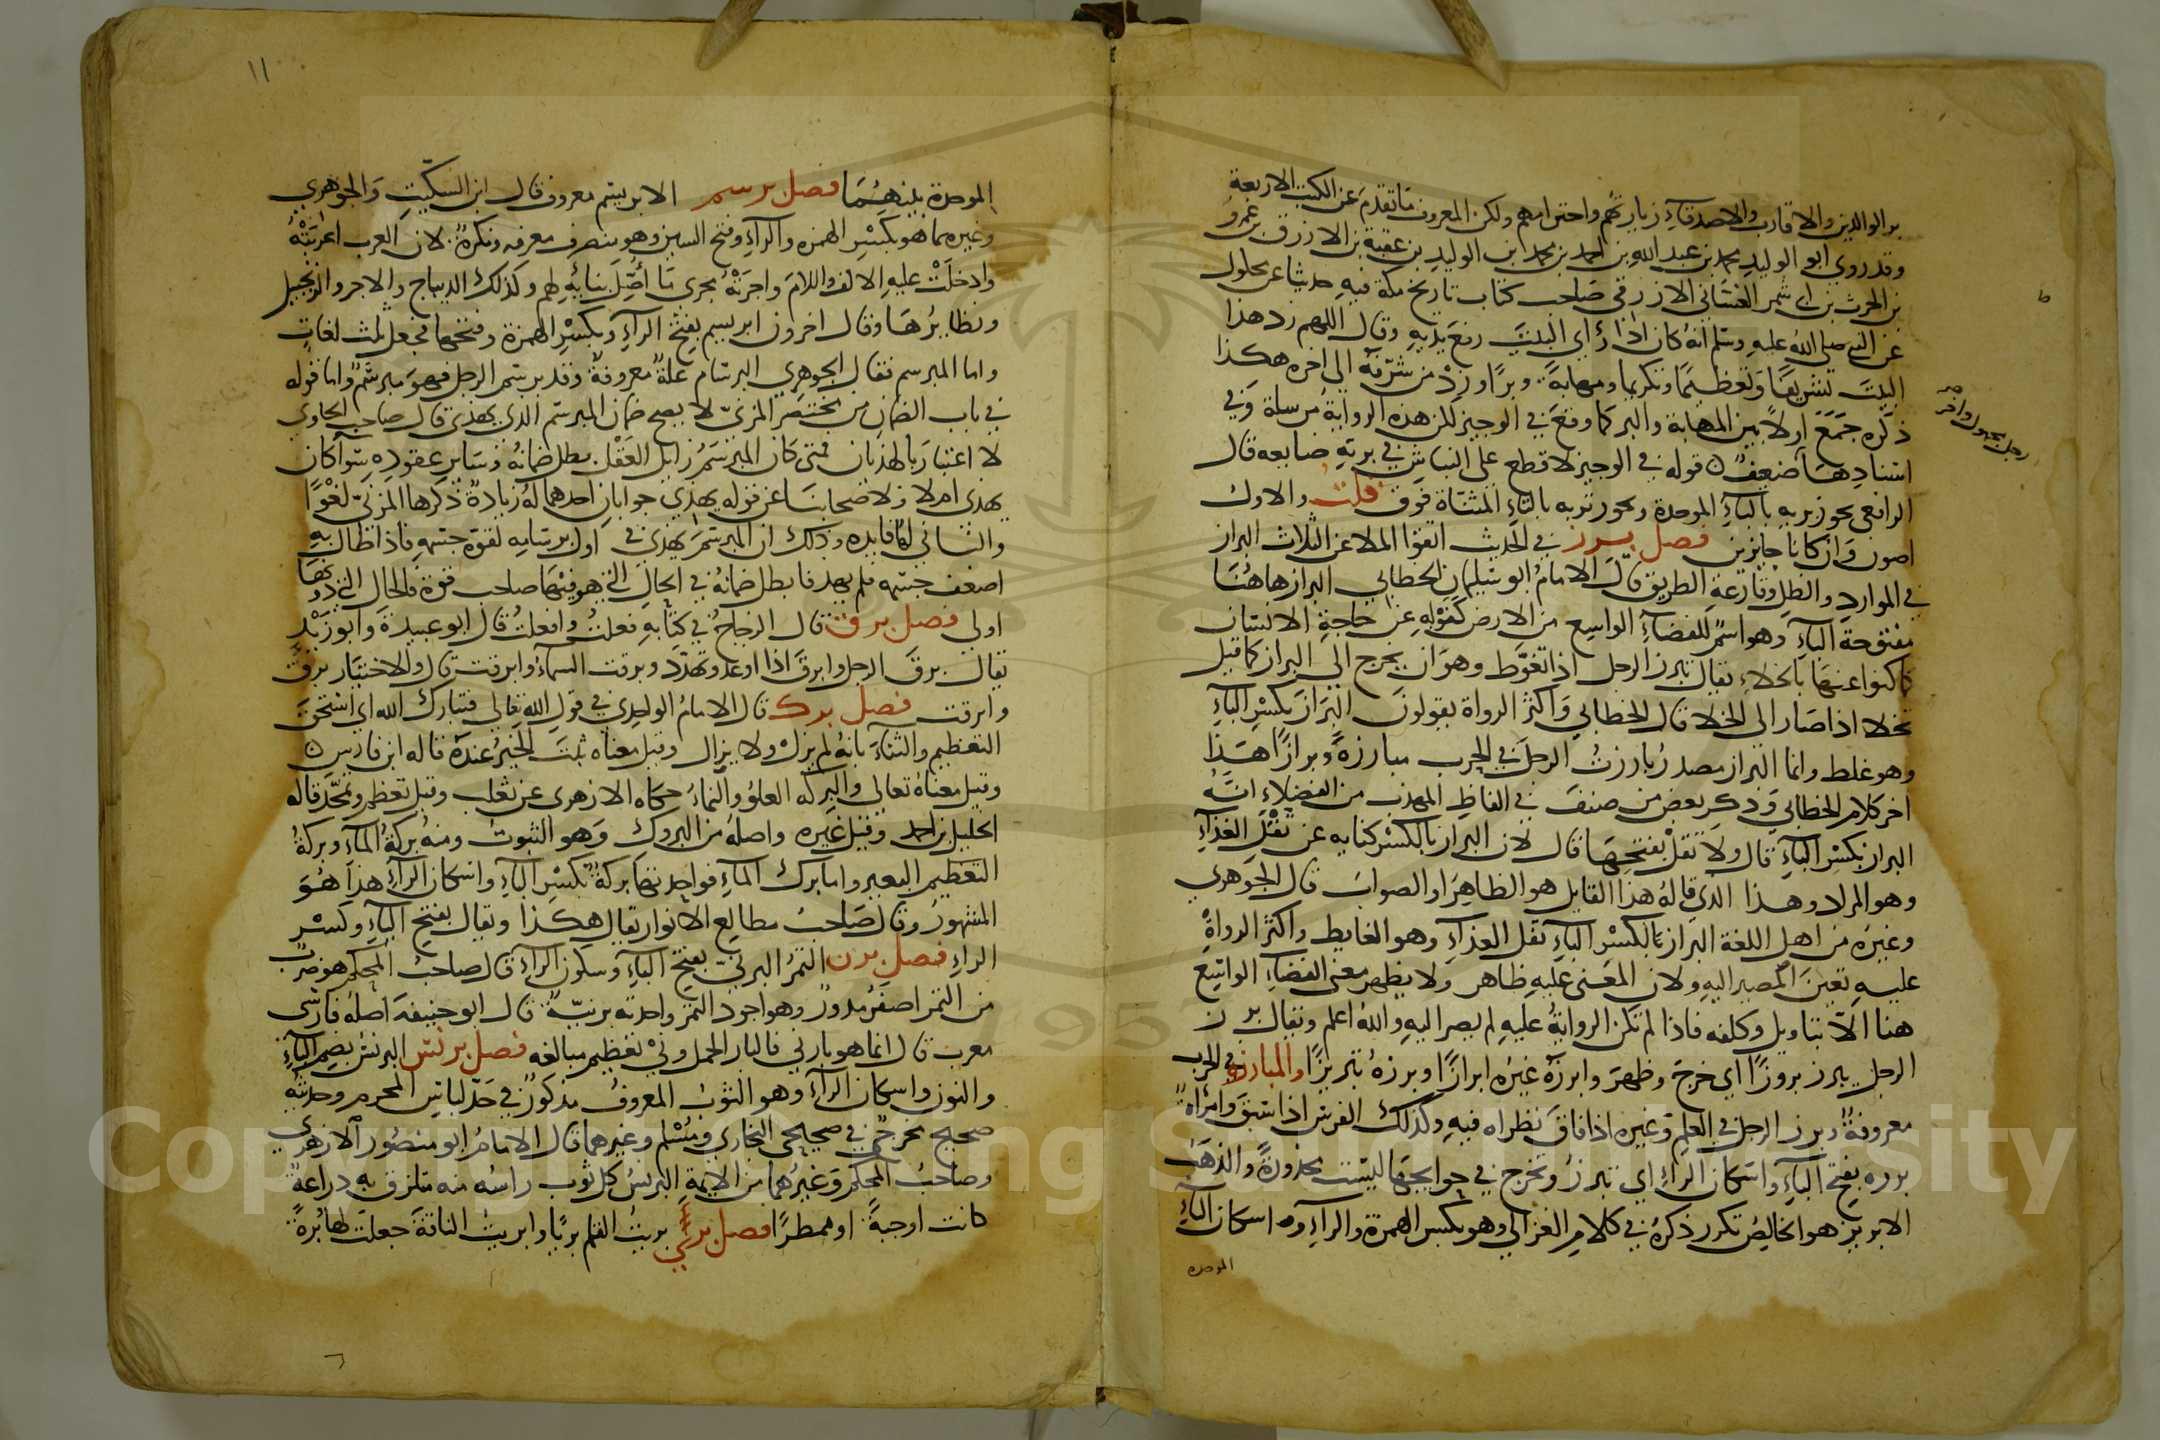 بر الوالدين والاقارب والاصدقاء زيارتهم واحترامهم ولكن المعروف ما تقدم عن الكتب الاربعة
وقد روي ابو الوليد محمد بن عبد الله بن احمد بن محمد بن الوليد بن عقبة بن الازرق بن عمرو
بن الحرث بن ابي شمر الغساني الازرقي صاحب كتاب تاريخ مكة فيه حديثا عن مكحول
عن النبي صلى الله عليه وسلم انه كان اذا رأي البيت رفع يديه وقال اللهم زد هذا
البيت تشريفا وتعظيما وتكريما ومهابة وبرا وزد من شرفه الى اخره هكذا
ذكره جمع اولا بين المهابة والبر كما وقع في الوجيز لكن هذه الرواية مرسلة وفي
اسنادها ضعيف قوله في الوجيز لا قطع على النباش في برية ضايعه قال
الرافعي يجوز بريه بالباء الموحدة ويجوز تربه بالتاء المثناة فوق قلت والاول
اصون وان كانا جايزين فصل برز في الحديث اتقوا الملاعن الثلاث البراز
في الموارد والظل وقارعة الطريق قال الامام ابو سليمان الخطابي البراز هاهنا
مفتوحة الباء وهو اسم للفضاء الواسع من الارض كنوا به عن حاجة الانسان
كما كنوا عنها بالخلاء يقال تبرز الرجل اذا تغوط وهو ان يخرج الى البراز كما قيل
تخلا اذا صار الى الخلا قال الخطابي واكثر الرواة يقولون البراز بكسر الباء
وهو غلط وانما البراز مصدر بارزت الرجل في الحرب مبارزة وبرازا هذا
اخر كلام الخطابي وذكر بعض من صنف في الفاظ المهذب من الفضلاء انه
البراز بكسر الباء قال ولا تقل بفتحها قال لان البراز بالكسر كنايه عن ثفل الغذاء
وهو المراد وهذا الذي قاله هذا القايل هو الظاهر او الصواب قال الجوهري
وغيره من اهل اللغة البراز بالكسر الباء ثفل الغذاء وهو الغايط واكثر الرواة
عليه تعين المصير اليه ولان المعنى عليه ظاهر ولا يظهر معنى الفضاء الواسع
هنا الا بتاويل وكلفه فاذا لم تكن الرواية عليه لم يصر اليه والله اعلم ويقال برز
الرجل يبرز بروزا اي خرج وظهر وابرزه غيره ابرازا وبرزه تبريزا والمبارزة في الحرب
معروفة وبرز الرجل في العلم وغيره اذا فاق نظراه فيه وكذلك الفرس اذا سبق وامراة
برزه بفتح الباء واسكان الراء اي تبرز وتخرج في حوايجها ليست مخدرة والذهب
الابريز هو الخالص تكرر ذكره في كلام الغزالي وهو بكسر الهمزة والراء واسكان الباء
الموحده
١١
الموحدة بينهما فصل برسم الابريسم معروف قال ابن السكيت والجوهري
وغيرهما هو بكسر الهمزه والراء وفتح السين وهو ينصرف معرفه ونكرة لان العرب اعربته
وادخلت عليه الالف واللام واجرته مجرى ما أصل بنائه لهم وكذلك الديباج والاجر والزنجبيل
ونظايرها وقال اخرون ابريسم بفتح الراء وبكسر الهمزة وفتحها فجعل ثلث لغات
واما المبرسم فقال الجوهري البرسام علة معروفة وقد برسم الرجل فهو مبرسم واما قوله
في باب الضمان من مختصر المزني لا يصح ضمان المبرسم الذي يهذي قال صاحب الحاوي
لا اعتبار بالهذيان فمتى كان المبرسم زايل العقل بطل ضمانه وساير عقوده سواء كان
يهذى ام لا ولاصحابنا عن قوله يهذي جوابان احدهما له زيادة ذكرها المزني لغوا
والثاني لها فايده وذلك ان المبرسم يهذي في اول برسامه لقوة جسمه فاذا طال به
اضعف جسمه فلم يهذ فابطل ضمانه في الحال التي هو فيها صاحب قوة فالحال التي دونها
اولى فصل برق قال الزجاج في كتابه فعلت وافعلت قال ابو عبيدة وابو زيد
يقال برق الرجل وابرق اذا اوعد وتهدد وبرقت السماء وابرقت قال والاختيار برق
وابرقت فصل برك قال الامام الواحدي في قول الله تعالى فتبارك الله اي استحق
التعظيم والثناء بانه لم يزل ولا يزال وقيل معناه ثبت الخير عنده قاله ابن فارس
وقيل معناه تعالى والبركه العلو والنماء حكاه الازهرى عن ثعلب وقيل تعظم وتمجد قاله
الخليل بن احمد وقيل غيره واصله من البروك وهو الثبوت ومنه بركة الماء وبركة
التعظيم البعير واما برك الماء فواحدتها بركة بكسر الباء واسكان الراء هذا هو
المشهور وقال صاحب مطالع الانوار يقال هكذا ويقال بفتح الباء وكسر
الراء فصل برن التمر البرني بفتح الباء وسكون الراء قال صاحب المحكم هو ضرب
من التمر اصفر مدور وهو اجود التمر واحدته برنية قال ابو حنيفه اصله فارسى
معرب قال انما هو بارني فالبار الحمل وني تعظيم مبالغه فصل برنس البرنس بضم الباء
والنون واسكان الراء وهو الثوب المعروف مذكور في حد لباس المحرم وحديثه
صحيح مخرج في صحيحي البخاري ومسلم وغيرهما قال الامام ابو منصور الازهري
وصاحب المحكم وغيرهما من الايمة البرنس كل ثوب راسه منه ملتزق به دراعة
كانت او جبة او ممطرا فصل بري بريت القلم بريا وابريت الناقة جعلت لها برة